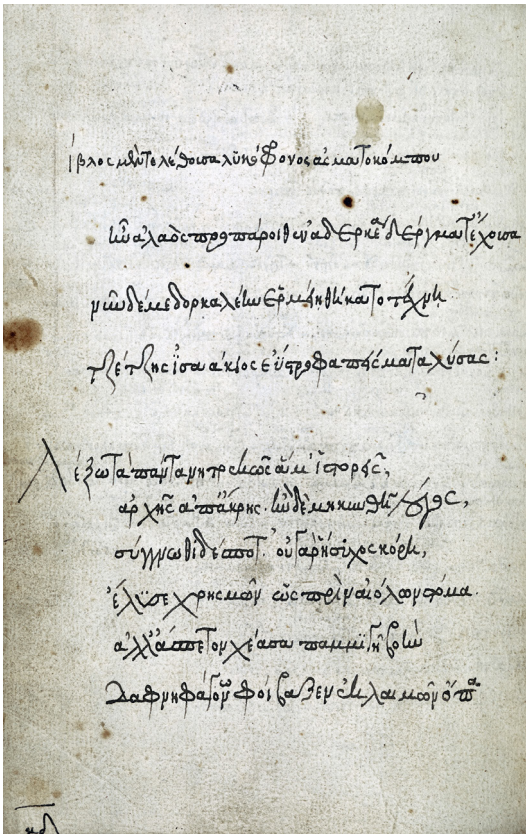 ίβλος μὲν τελέθοισα λυκόφρονος ἀσματοκόμπου
νῦν ἀλαὸς προπάροιθεν ἀδερκέα δέργματ' ἔχοισα
νῦν δέ με δορκαλέην ἑρμείῃ θήκατο τέχνη
τζέτζης ἰσαάκιος ἐΰστροφα πείσματα λύσας:
Λέξω τὰ πάντα νητρεκῶς ἅ μ' ἱστορεῖς,
ἀρχῆς ἀπ' ἄκρης. ἢν δὲ μηκυνθῇ λόγος,
σύγγνωθι δέσποτ'. οὐ γὰρ ἥσυχος κόρη,
ἔλυσε χρησμῶν ὡς πρὶν αἰόλον στόμα.
ἀλλ' ἄσπετον χέασα παμμιγῆ βοὴν
Δαφνηφάγων φοίβαζεν ἐκ λαιμῶν ὄπα